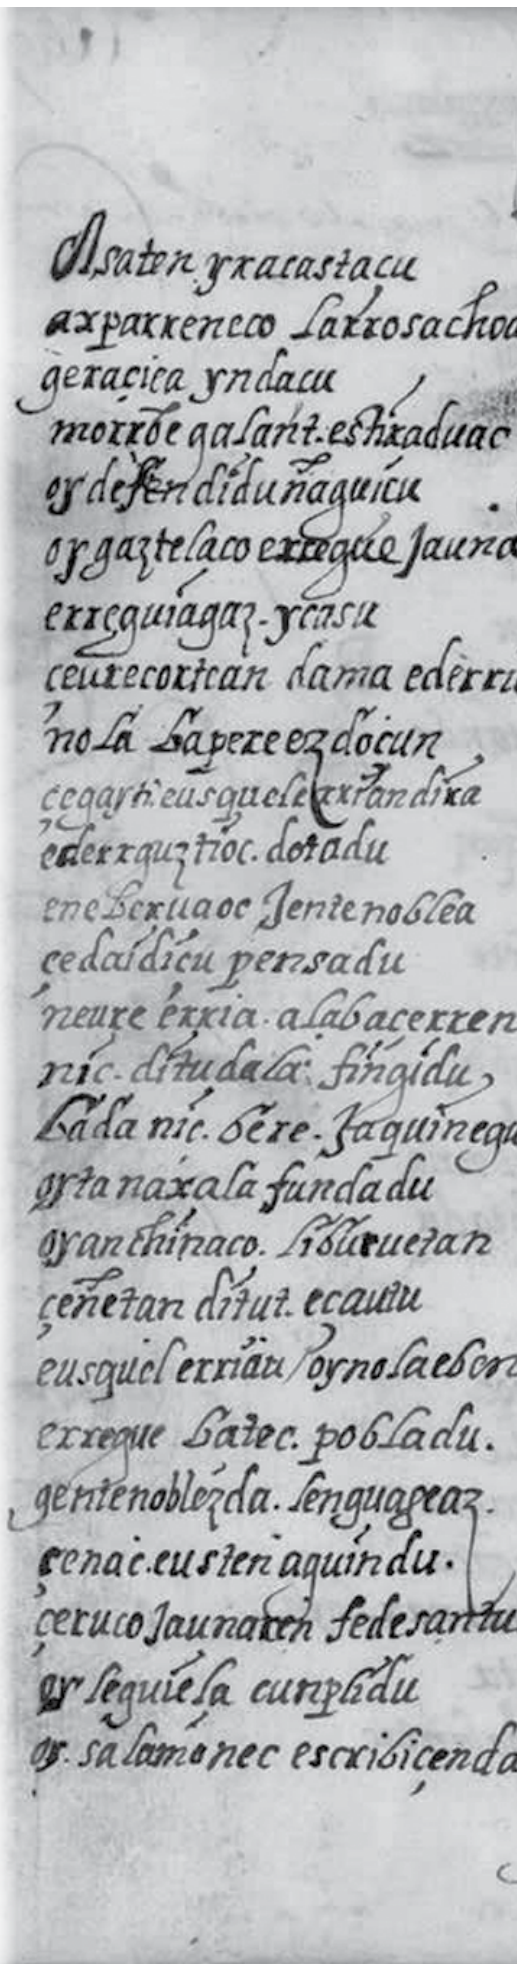 Asaten yracastacu
axparreneco larrosachoa
geraçica yndacu
morrõe galant. estiraduac
oy defendidu naguicu
oy gaztelaco erregue Jauna
erreguiagaz. ycasu
çeurecortean dama ederru
nola bapere ez docun
çegayti. eusquelerrian dira
ederr guztioc. dotadu
ene beruaoc Jentenoblea
çedaidicu pensadu
neure erria. alabacerren
nic. ditudala fingidu
bada nic. bere. Jaquinegu
oyta naxala fundadu
oy anchinaco. liburuetan
çeñetan ditut. ecautu
eusquel erriau oynolaeben
erregue batec. pobladu.
gentenoblezda. lenguageaz.
çenac. eusten aguindu.
çeruco Jaunaren fedesantu
oy leguiela cunplidu
oy. salamonec escribiçenda